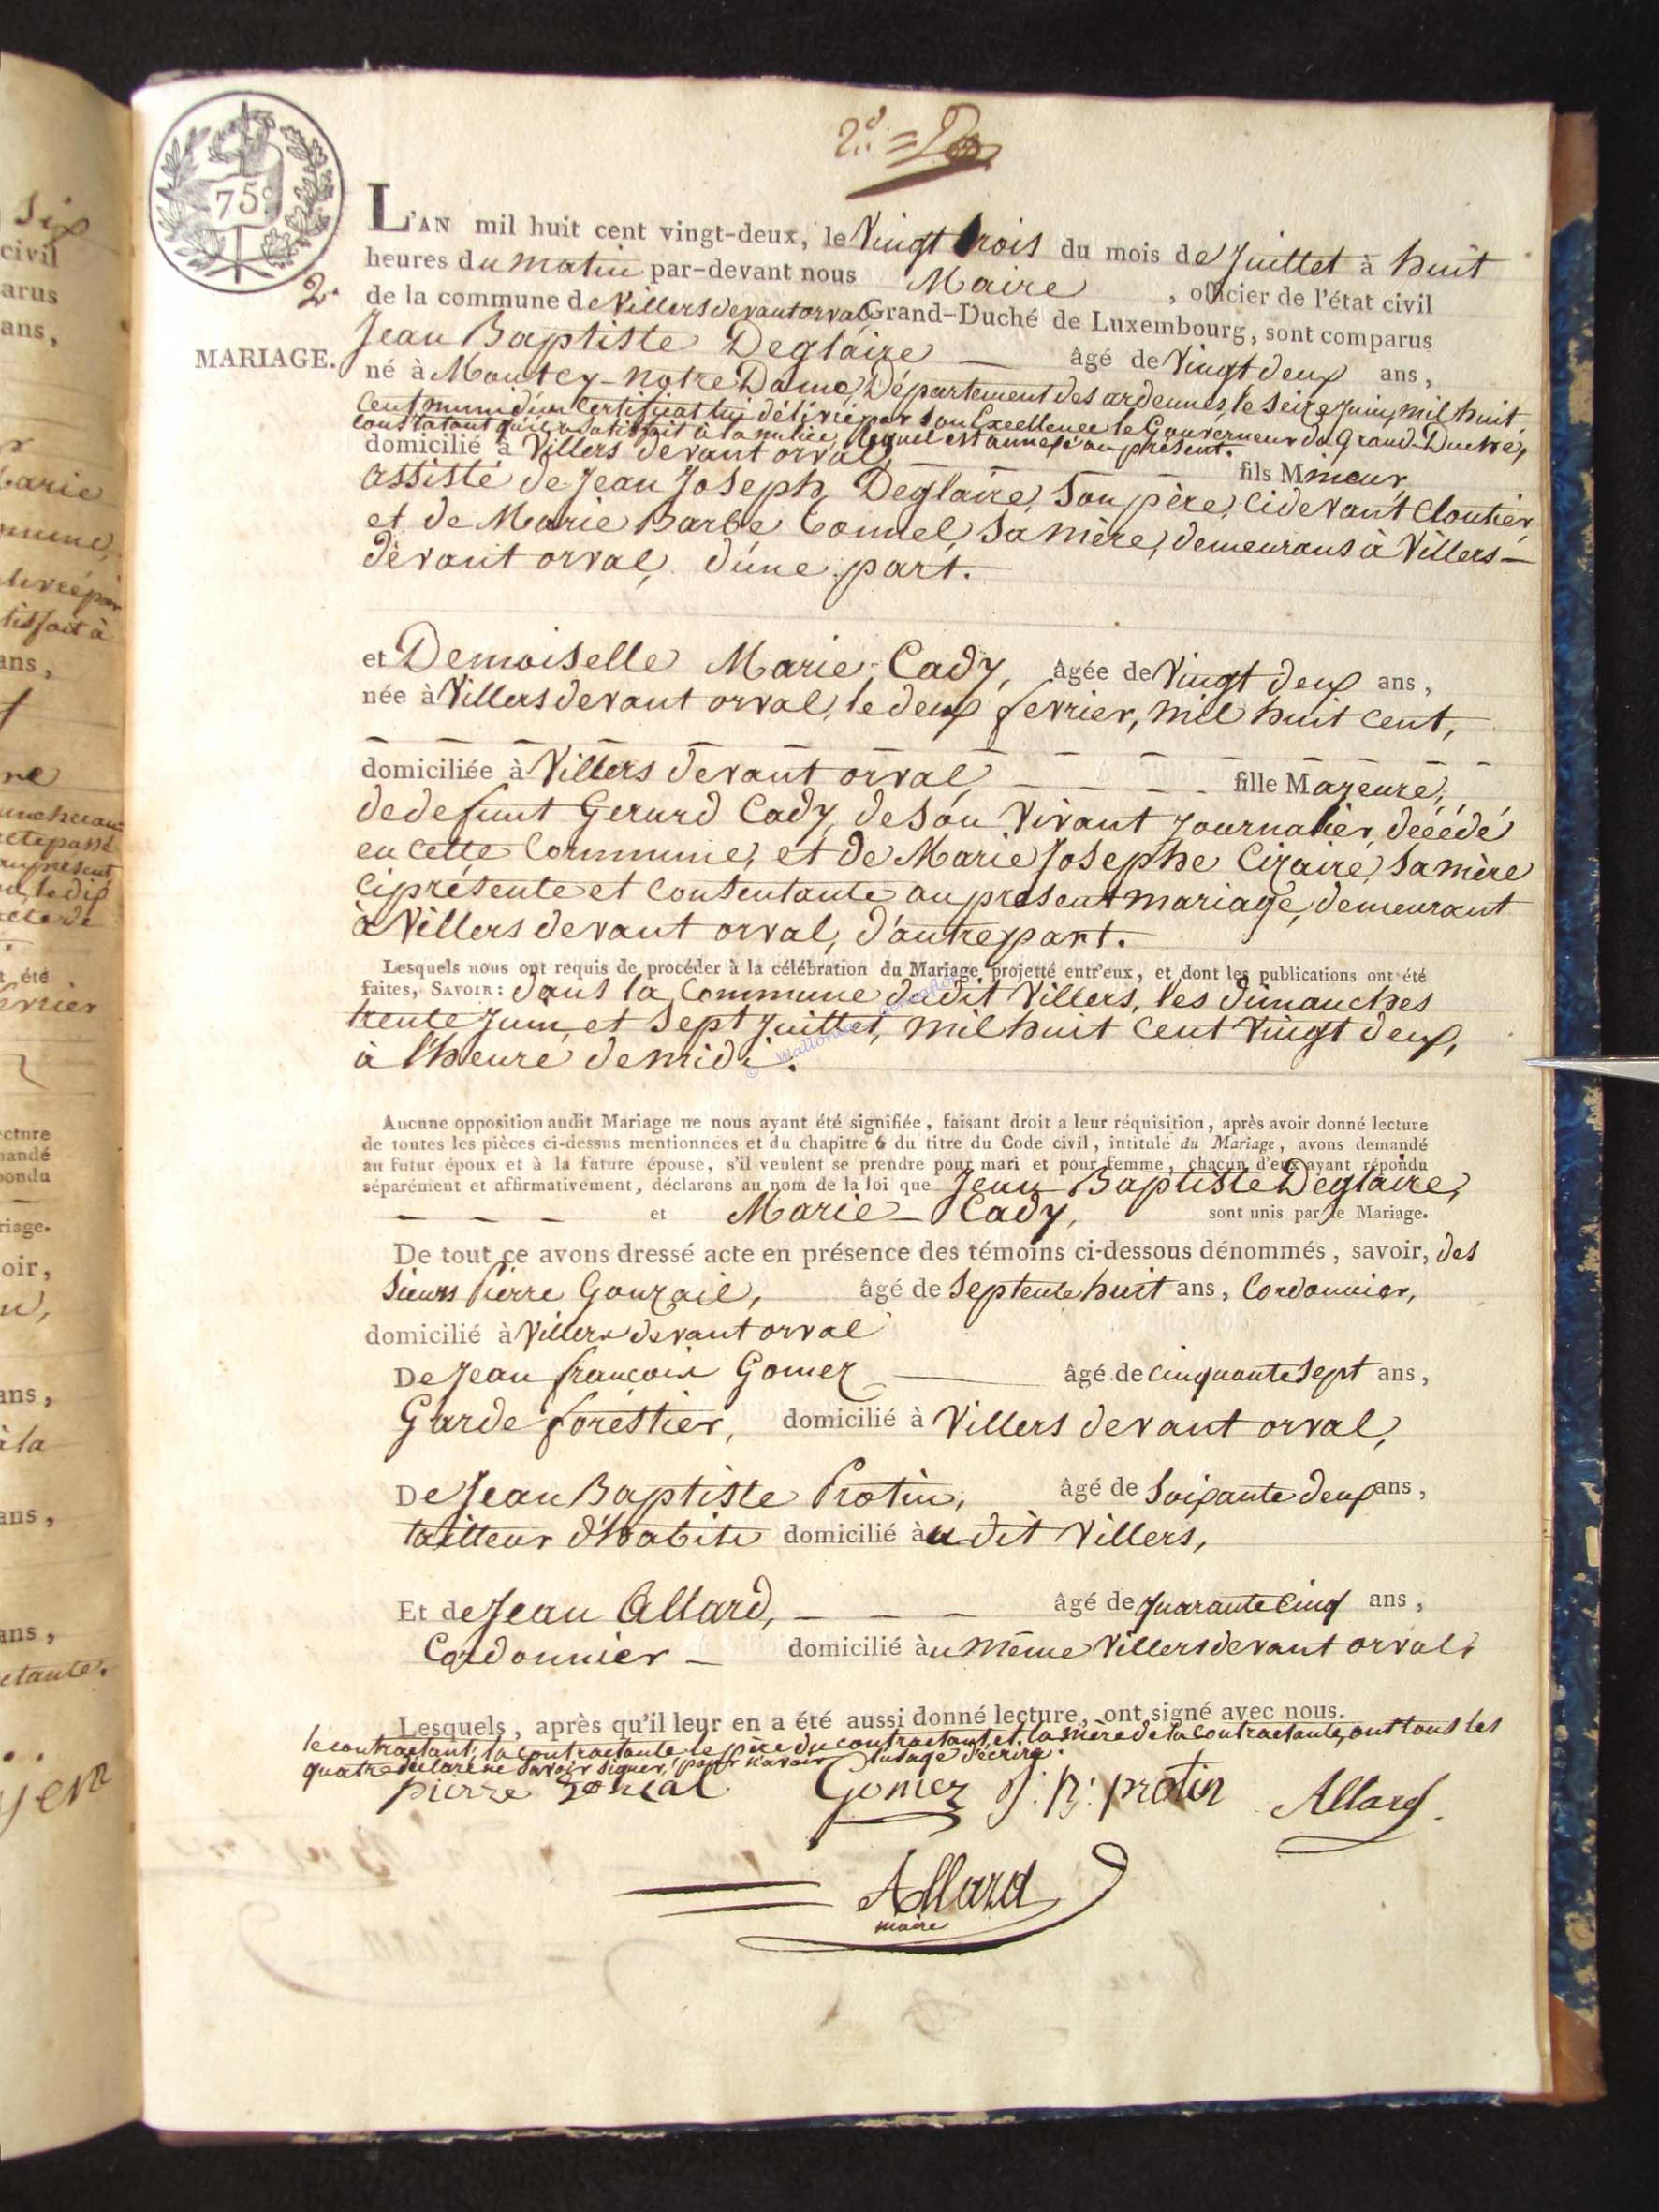 2d = 
75c
2.
MARIAGE.
L'AN mil huit cent vingt-deux, le Vingt trois du mois de Juillet à huit
heures du matin par-devant nous Maire, officier de l'état civil
de la commune de Villers devant orval Grand-Duché de Luxembourg, sont comparus
Jean Baptiste Deglaire âgé de Vingt deux ans,
né à Moutcy-notre Dame, Département des ardennes, le seize Juin, mil huit
Cent, muni d'un Certificat lui délivré par Son Excellence le Gouverneur du Grand-Duché,
constatant qu'il a satisfait à la milice, lequel est annexé au présent.
domicilié à Villers devant orval, fils Mineur,
assisté de Jean Joseph Deglaire, Son père, cidevant Cloutier
et de Marie Barbe Sa Mère, demeurans à Villers-
devant orval, d'une part.
et Demoiselle Marie-Cady, âgée de Vingt deux ans,
née à Villers devant orval, le deux fevrier, mil huit cent,
domiciliée à Villers devant orval fille Majeure,
de defunt Gerard Cady, de Son Vivant Journalier, décédé
en cette Commune, et de Marie Josephe Sa mère
ciprésente et consentante au present mariage, demeurant
à Villers devant orval, d'autre part.
Lesquels nous ont requis de procéder à la célébration du Mariage projetté entr'eux, et dont les publications ont été
faites, SAVOIR: dans la Commune dudit Villers, les dimanches
trente Juin, et Sept Juillet, mil huit Cent Vingt deux,
à l'heure de midi.
Aucune opposition audit Mariage ne nous ayant été signifiée, faisant droit a leur réquisition, après avoir donné lecture
de toutes les pièces ci-dessus mentionnées et du chapitre 6 du titre du Code civil, intitulé du Mariage, avons demandé
au futur époux et à la future épouse, s'il veulent se prendre pour mari et pour femme, chacun d'eux ayant répondu
séparément et affirmativement, déclarons au nom de la loi que Jean Baptiste Deglaire,
et Marie-Cady, sont unis par le Mariage.
De tout ce avons dressé acte en présence des témoins ci-dessous dénommés, savoir, des
Sieurs Pierre Gonzail, âgé de Septente huit ans, Cordonnier,
domicilié à Villers devant orval
De Jean françois Gomez âgé de cinquante Sept ans,
Garde forestier, domicilié à Villers devant orval,
De Jean Baptiste Protin, âgé de Soixante deux ans,
tailleur d'habits domicilié au dit Villers,
Et de Jean Allard, âgé de quarante cinq ans,
Cordonnier domicilié au même Villers devant orval.
Lesquels, après qu'il leur en a été aussi donné lecture, ont signé avec nous.
le contractant, la contractante, le père du contractant, et la mère de la contractante, ont tous les
quatre déclaré ne Savoir Signer, pour n'avoir l'usage d'écrire.
pierre Gonzal Gomez J: B: protin Allard
Allard
maire